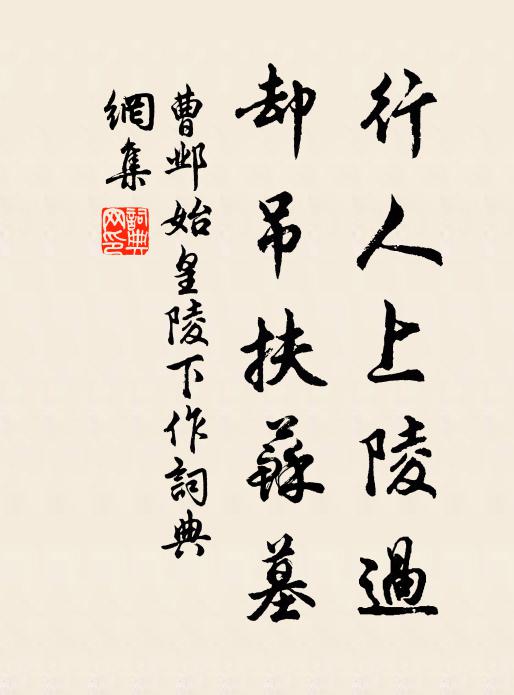 行人上陵過
却吊扶蘇墓
曹邺始皇陵下作詞典
網集
詞典
网印